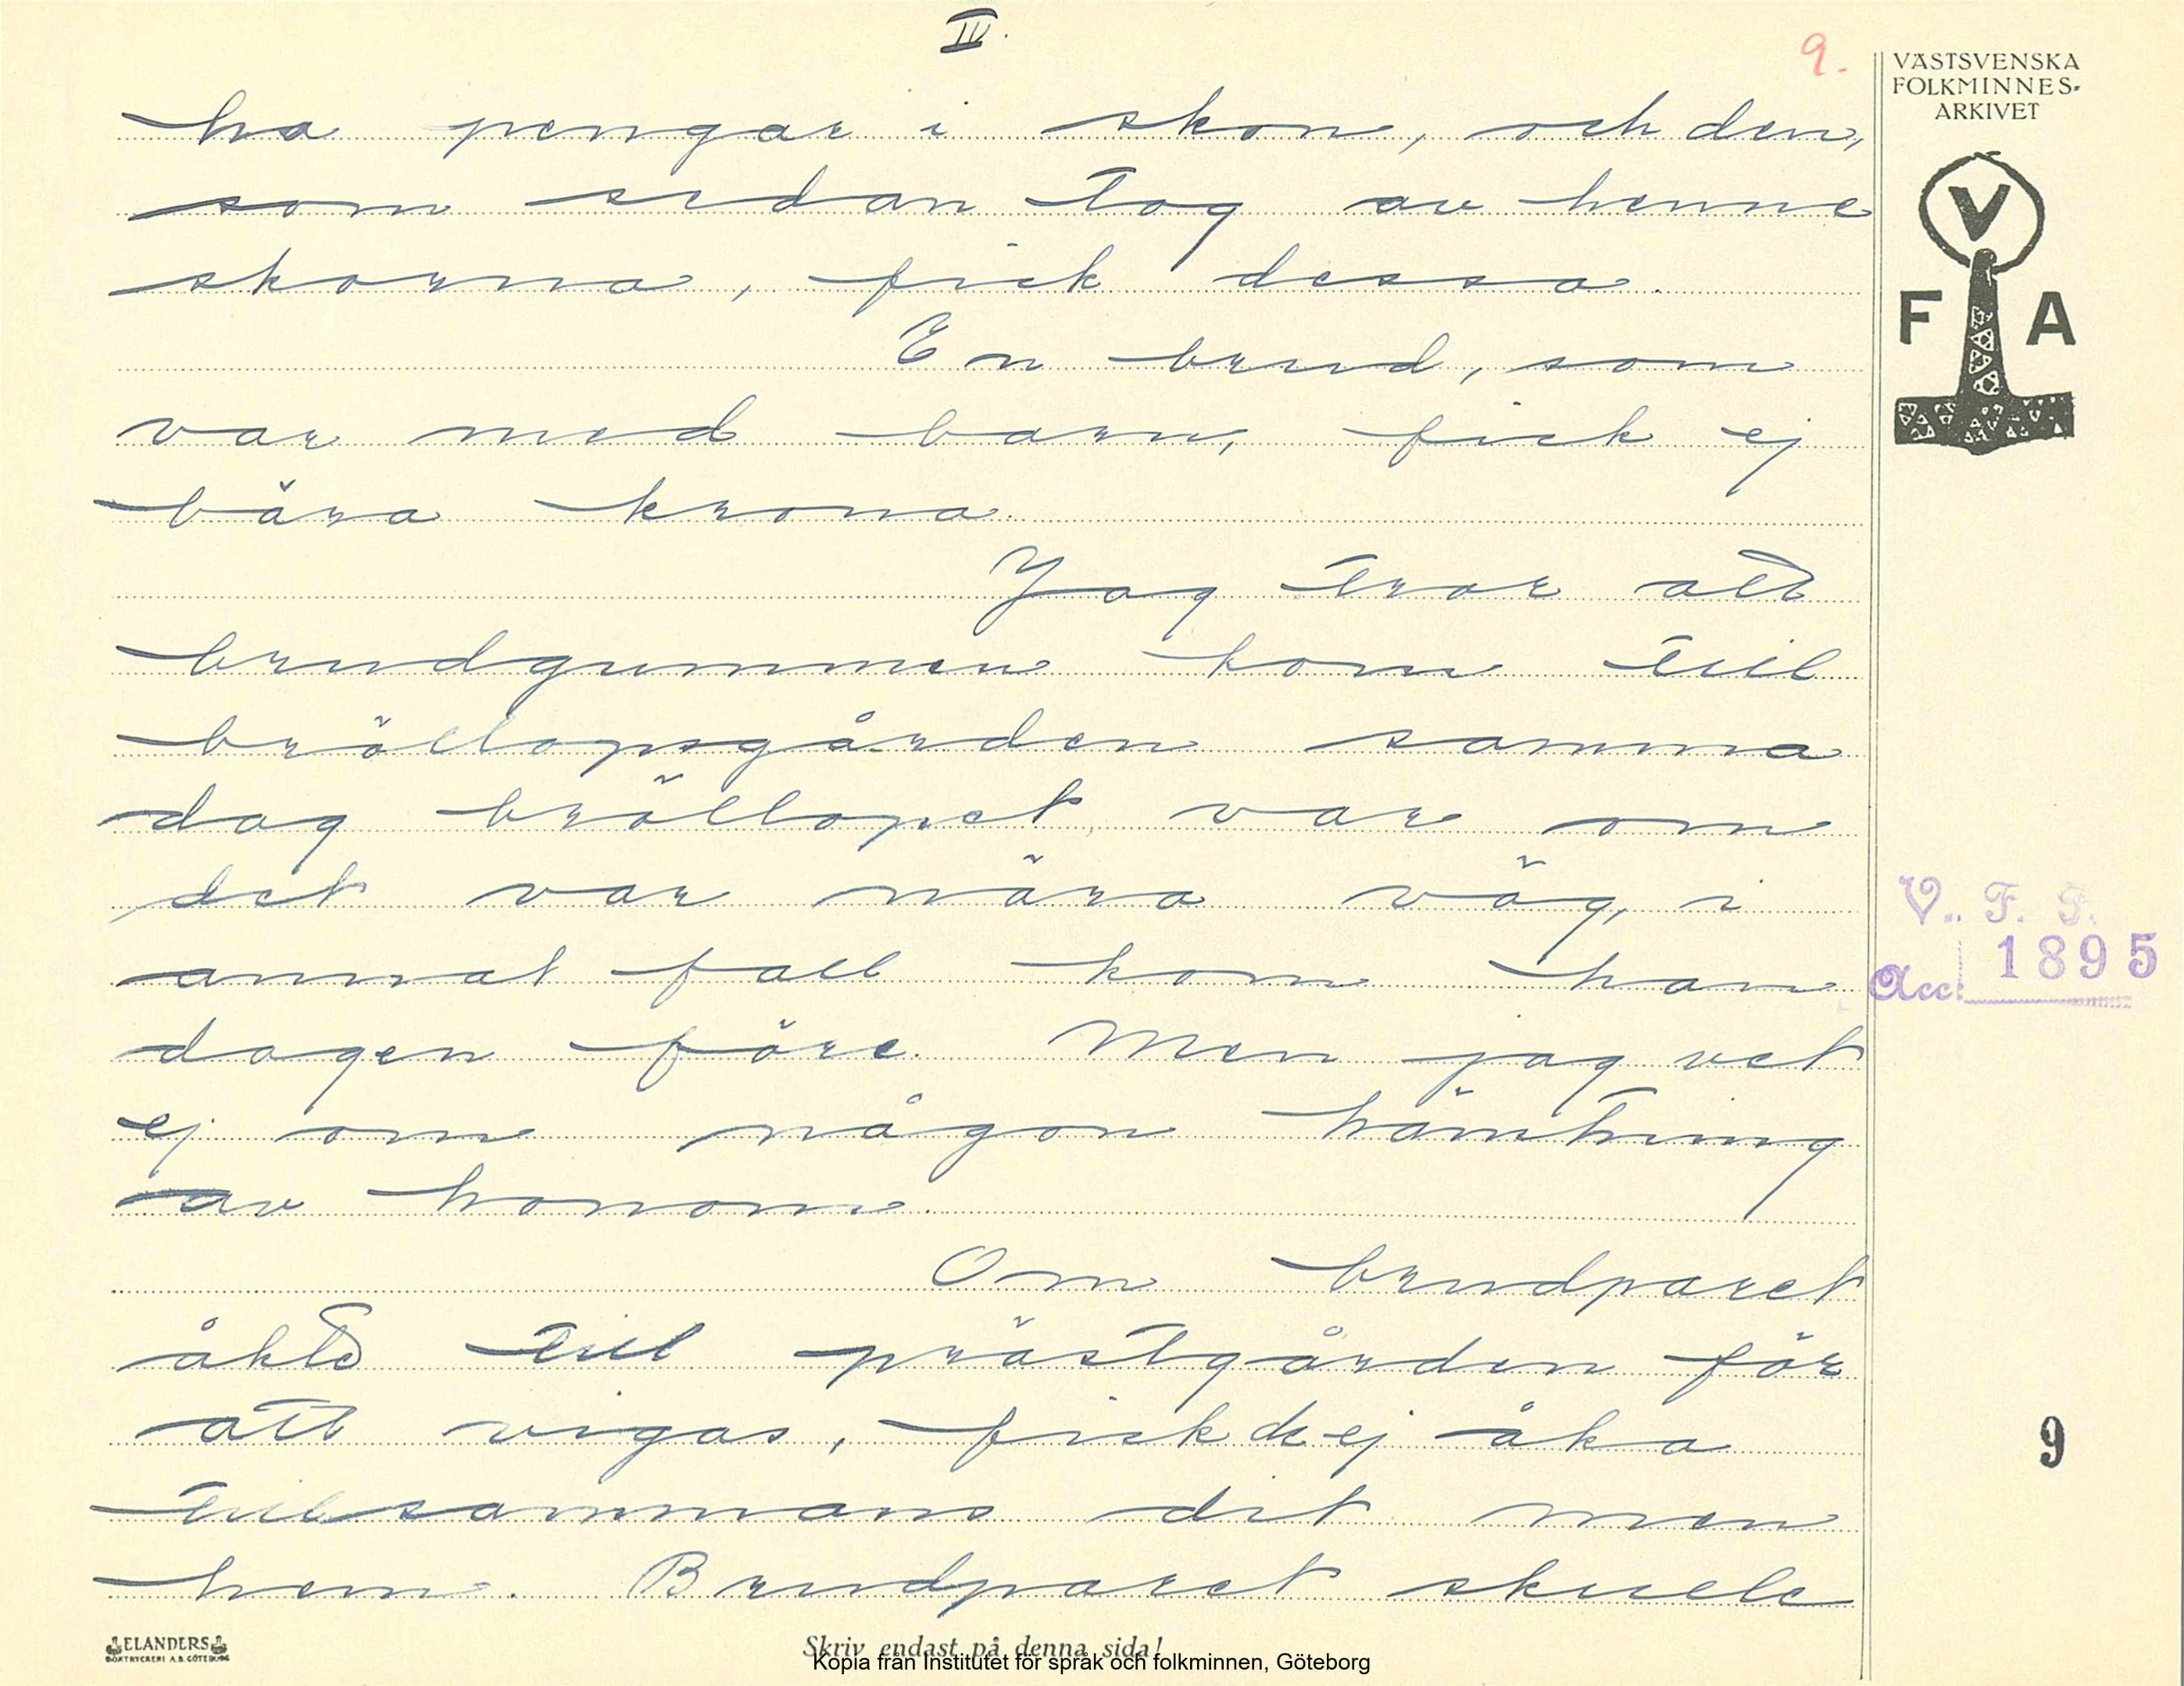 IV.
9.
VÄSTSVENSKA
FOLKMINNES-
ARKIVET
V
F A
ha pengar i skon, och den,
som sedan tog av henne
skorna, fick dessa.
En brud, som
var med barn, fick ej
bära krona.
Jag tror att
brudgummen kom till
bröllopsgården samma
dag bröllopet var om
det var nära väg, i
annat fall kom han
dagen före. Men jag vet
ej om någon hämtning
av honom.
Om brudparet
åkte till prästgården för
att vigas, fick de ej åka
tillsammans dit men
hem. Brudparet skulle
V. F. F.
Acc. 1895
9
ELANDERS
BOKTRYCKERI A.B. GÖTEBORG
Skriv endast på denna sida!
Kopia från Institutet för språk och folkminnen, Göteborg